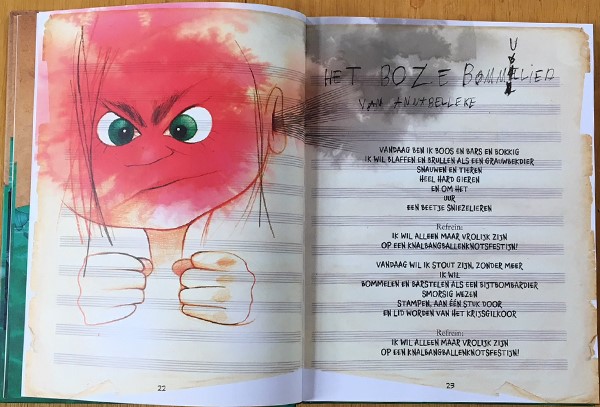 HET BOZE BOMMELLIED
VAN ANNABELLEKE
VANDAAG BEN IK BOOS EN BARS EN BOKKIG
IK WIL BLAFFEN EN BRULLEN ALS EEN GRAUWBEKDIER
SNAUWEN EN TIEREN
HEEL HARD GIEREN
EN OM HET
UUR
EEN BEETJE SNIEZELIEREN
Refrein:
IK WIL ALLEEN MAAR VROLIJK ZIJN
OP EEN KNALBANGBALLENKNOTSFESTIJN!
VANDAAG WIL IK STOUT ZIJN, ZONDER MEER
IK WIL
BOMMELEN EN BARSTELEN ALS EEN BIJTBOMBARDIER
SMORSIG WEZEN
STAMPEN, AAN ÉÉN STUK DOOR
EN LID WORDEN VAN HET KRIJSGILKOOR
Refrein:
IK WIL ALLEEN MAAR VROLIJK ZIJN
OP EEN KNALBANGBALLENKNOTSFESTIJN!
22
23